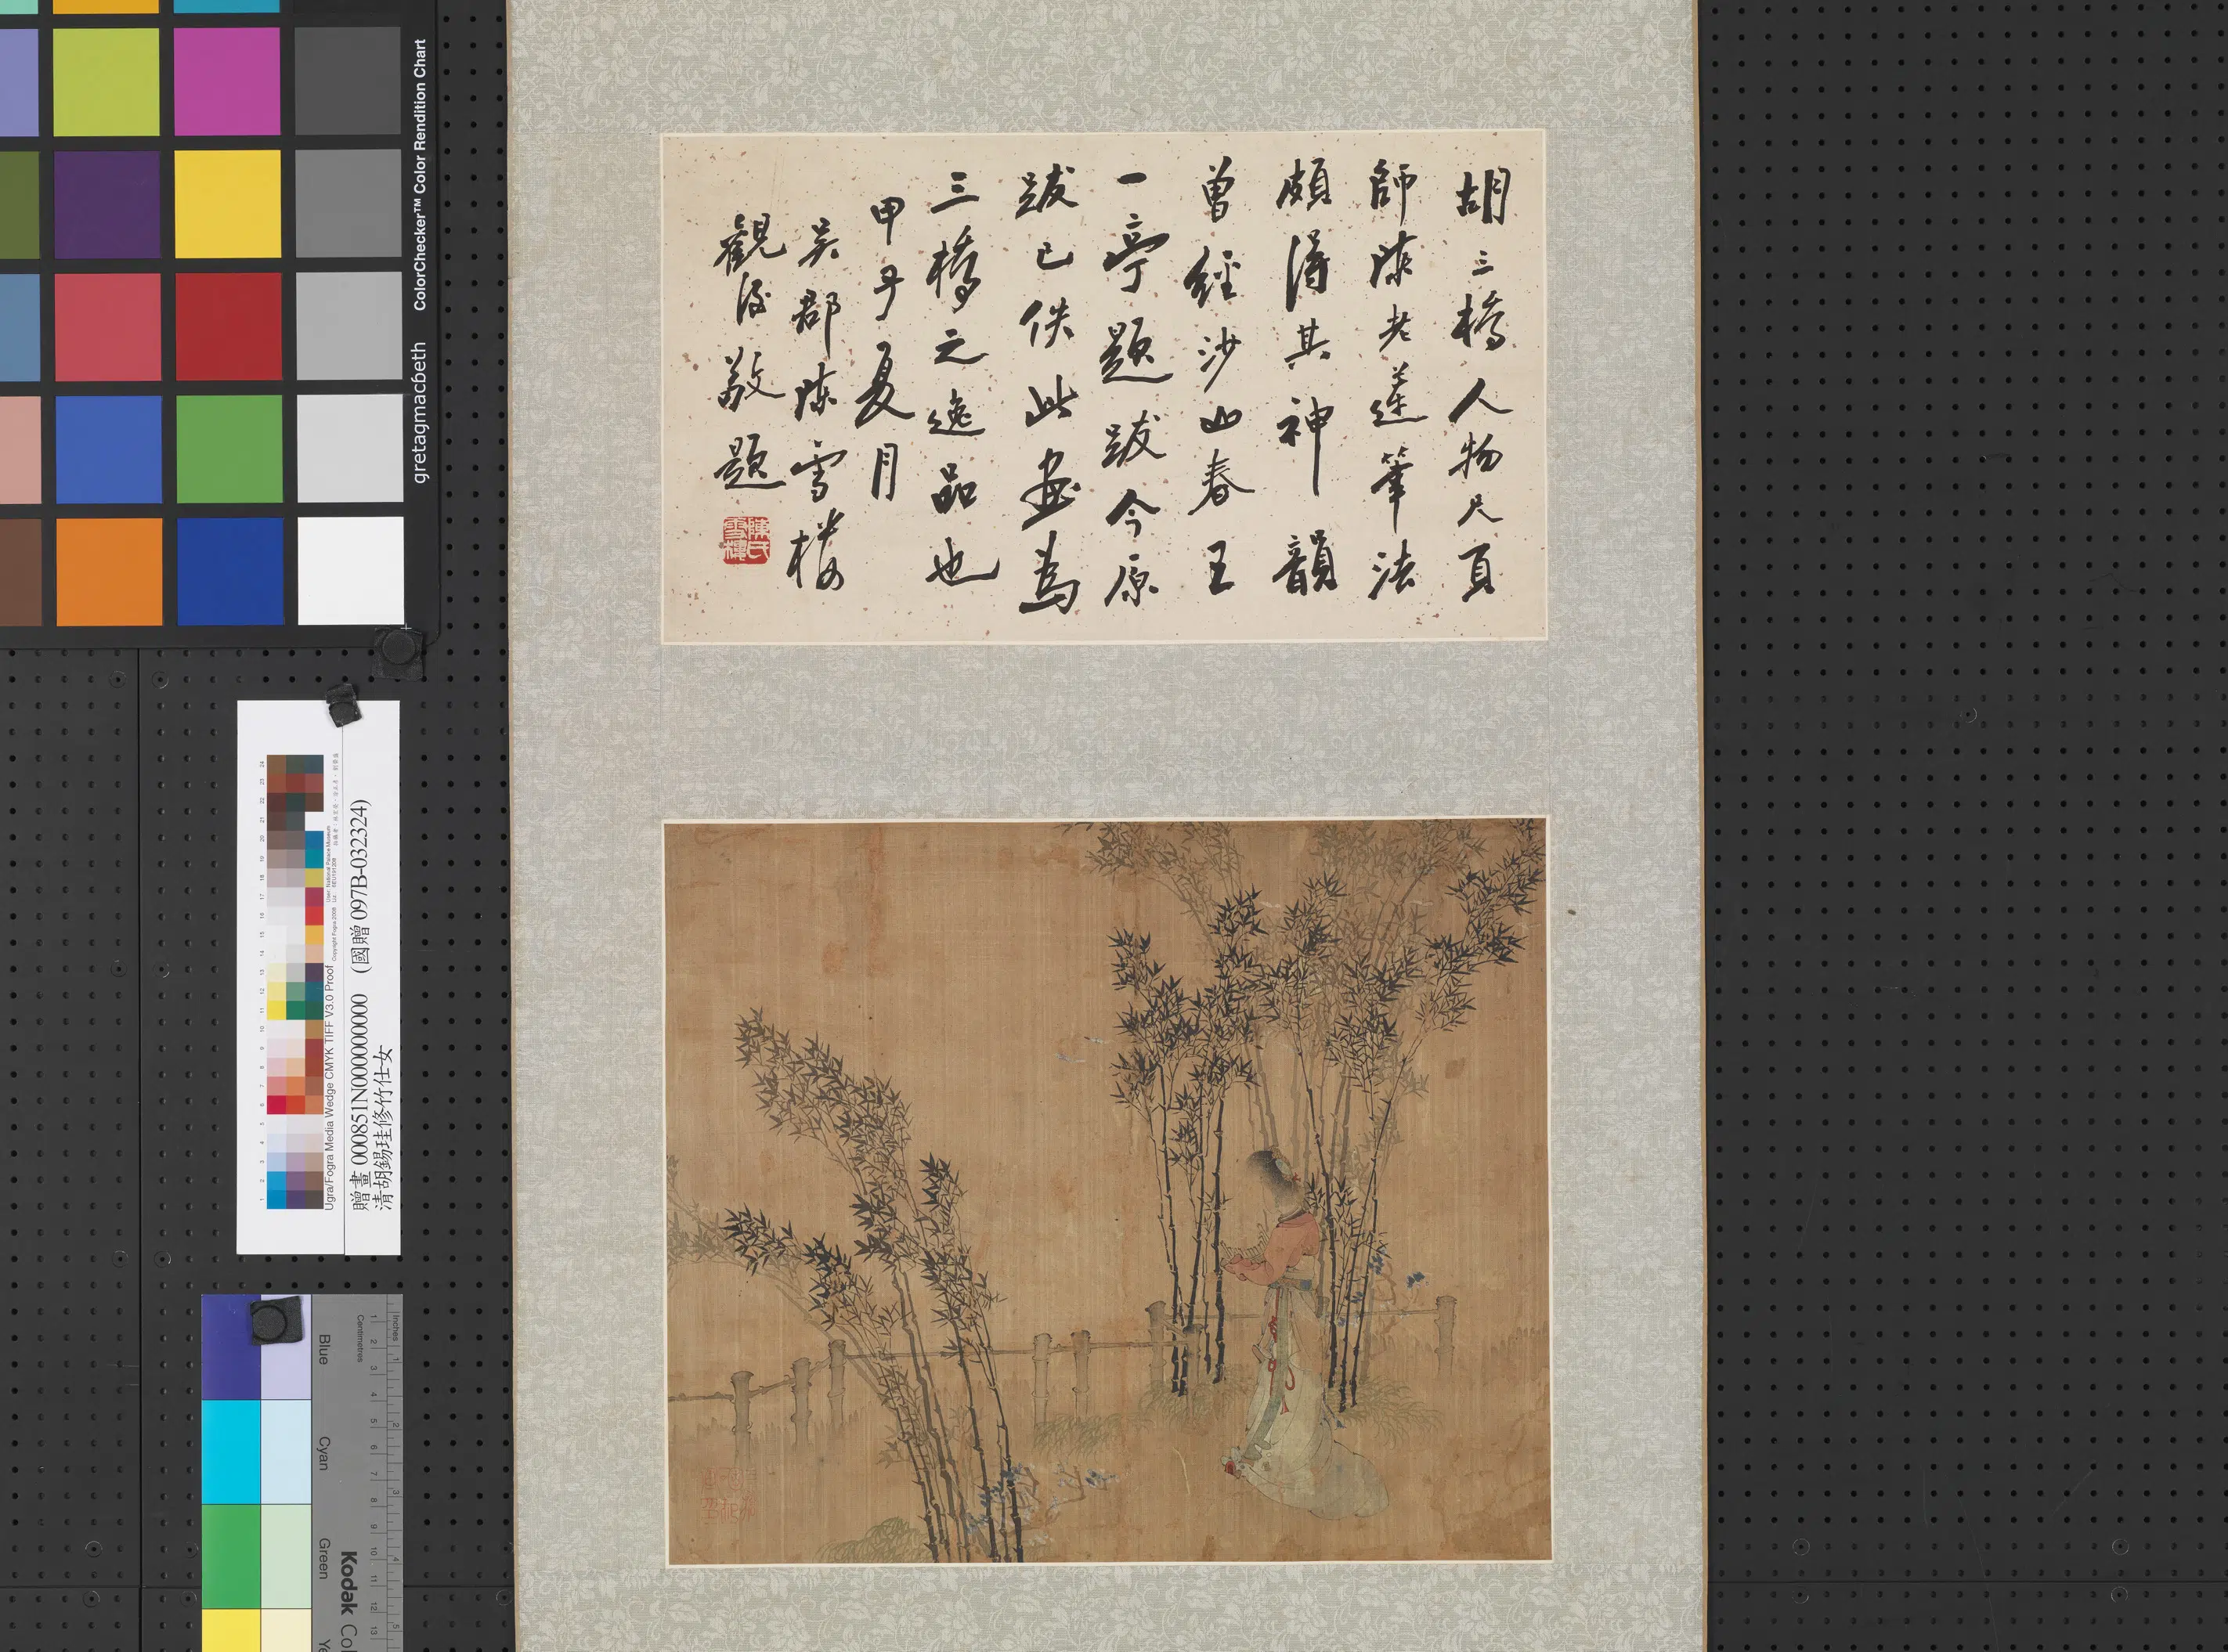 胡三橋人物尺頁
師陳老蓮筆法
頗得其神韻
曾經沙山春王
一亭題跋今原
跋已佚此畫為
三橋之逸品也
甲子夏月
吳郡陳雪樓
觀後敬題
陳氏雪樓
ColorChecker™ Color Rendition Chart
gretagmacbeth
Ugra/Fogra Media Wedge CMYK TIFF V3.0 Proof
贈畫 000851N000000000 (國贈 097B-032324)
清胡錫珪修竹仕女
Inches
Centimetres
Blue
Cyan
Green
Kodak